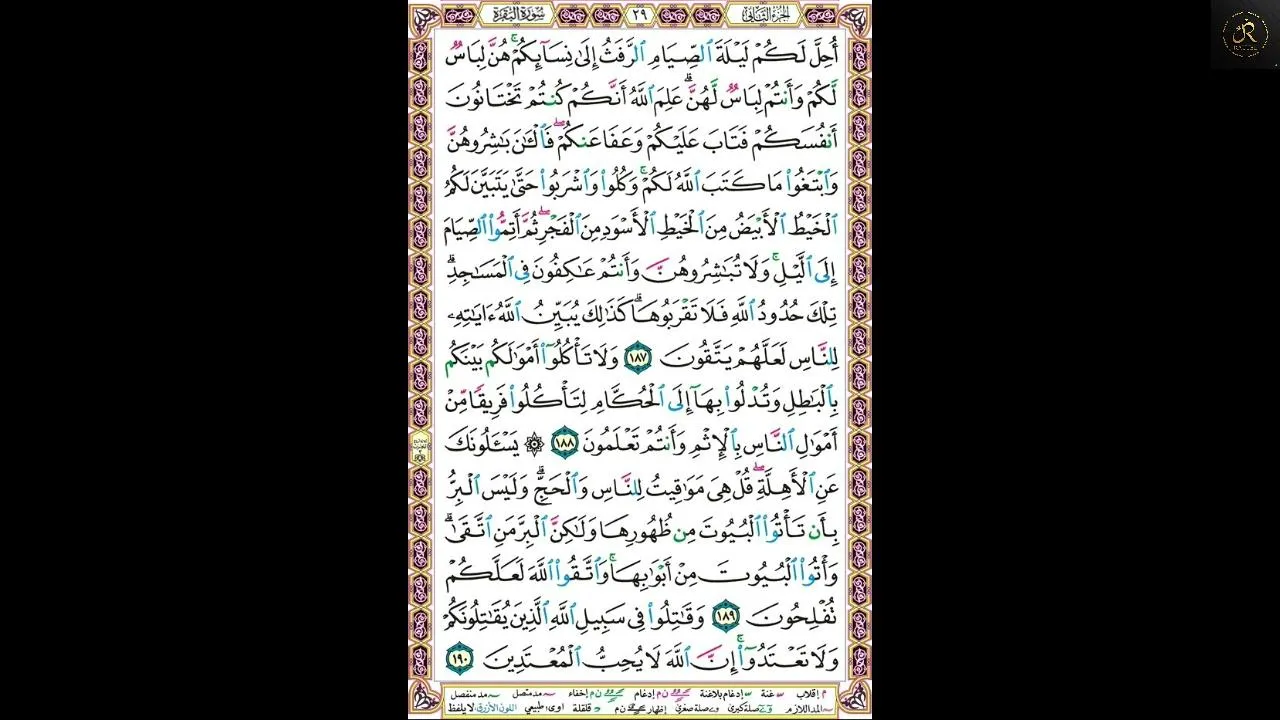 الجزء الثاني
٢٩
سورة البقرة
أُحِلَّ لَكُمْ لَيْلَةَ ٱلصِّيَامِ ٱلرَّفَثُ إِلَىٰ نِسَآئِكُمْ ۚ هُنَّ لِبَاسٌ
لَّكُمْ وَأَنتُمْ لِبَاسٌ لَّهُنَّ ۗ عَلِمَ ٱللَّهُ أَنَّكُمْ كُنتُمْ تَخْتَانُونَ
أَنفُسَكُمْ فَتَابَ عَلَيْكُمْ وَعَفَا عَنكُمْ ۖ فَٱلْـَٰٔنَ بَـٰشِرُوهُنَّ
وَٱبْتَغُوا۟ مَا كَتَبَ ٱللَّهُ لَكُمْ ۚ وَكُلُوا۟ وَٱشْرَبُوا۟ حَتَّىٰ يَتَبَيَّنَ لَكُمُ
ٱلْخَيْطُ ٱلْأَبْيَضُ مِنَ ٱلْخَيْطِ ٱلْأَسْوَدِ مِنَ ٱلْفَجْرِ ۖ ثُمَّ أَتِمُّوا۟ ٱلصِّيَامَ
إِلَى ٱلَّيْلِ ۚ وَلَا تُبَـٰشِرُوهُنَّ وَأَنتُمْ عَـٰكِفُونَ فِى ٱلْمَسَـٰجِدِ ۗ
تِلْكَ حُدُودُ ٱللَّهِ فَلَا تَقْرَبُوهَا ۗ كَذَٰلِكَ يُبَيِّنُ ٱللَّهُ ءَايَـٰتِهِۦ
لِلنَّاسِ لَعَلَّهُمْ يَتَّقُونَ ١٨٧ وَلَا تَأْكُلُوٓا۟ أَمْوَٰلَكُم بَيْنَكُم
بِٱلْبَـٰطِلِ وَتُدْلُوا۟ بِهَآ إِلَى ٱلْحُكَّامِ لِتَأْكُلُوا۟ فَرِيقًا مِّنْ
أَمْوَٰلِ ٱلنَّاسِ بِٱلْإِثْمِ وَأَنتُمْ تَعْلَمُونَ ١٨٨ ۞ يَسْـَٔلُونَكَ
عَنِ ٱلْأَهِلَّةِ ۖ قُلْ هِىَ مَوَٰقِيتُ لِلنَّاسِ وَٱلْحَجِّ ۗ وَلَيْسَ ٱلْبِرُّ
بِأَن تَأْتُوا۟ ٱلْبُيُوتَ مِن ظُهُورِهَا وَلَـٰكِنَّ ٱلْبِرَّ مَنِ ٱتَّقَىٰ ۗ
وَأْتُوا۟ ٱلْبُيُوتَ مِنْ أَبْوَٰبِهَا ۚ وَٱتَّقُوا۟ ٱللَّهَ لَعَلَّكُمْ
تُفْلِحُونَ ١٨٩ وَقَـٰتِلُوا۟ فِى سَبِيلِ ٱللَّهِ ٱلَّذِينَ يُقَـٰتِلُونَكُمْ
وَلَا تَعْتَدُوٓا۟ ۚ إِنَّ ٱللَّهَ لَا يُحِبُّ ٱلْمُعْتَدِينَ ١٩٠
م إقلاب غنة إدغام بلاغنة ن م إدغام ن م إخفاء مد متصل مد منفصل
المد اللازم صلة كبرى صلة صغرى إظهار ن م قلقلة اوى طبيعي اللون الأزرق لا يلفظ